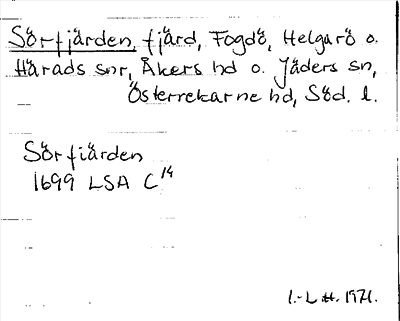 Sörfjärden, fjärd, Fogdö, Helgarö o.
Härads snr, Åkers hd o. Jäders sn,
Österrekarne hd, Söd. l.
Sörfiärden
1699 LSA C¹⁴
1971.